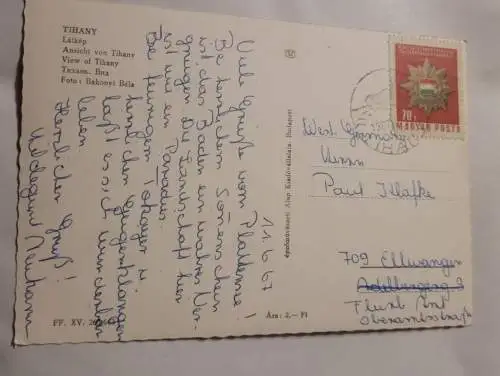 TIHANY
Látkép
Ansicht von Tihany
View of Tihany
Тихань. Вид
Foto: Bakonyi Béla
11.6.67
Viele Grüße vom Plattensee!
Bei herrlichem Sonnenschein
ist das Baden ein wahres Ver-
gnügen. Die Landschaft hier
ist wie ein Paradies.
Bei feurigem Tokajer u.
herrlichen Geigenklängen
läßt es sich wunderbar
leben
Herzlichen Gruß!
Hildegard
FF. XV.
Ára: 2,— Ft
Képzőművészeti Alap Kiadóvállalata, Budapest
70 f
MAGYAR POSTA
West Germany
Herrn
Paul Klafke
709 Ellwangen
Adelbergerg 9
Flurb. Amt
Oberamtsstraße